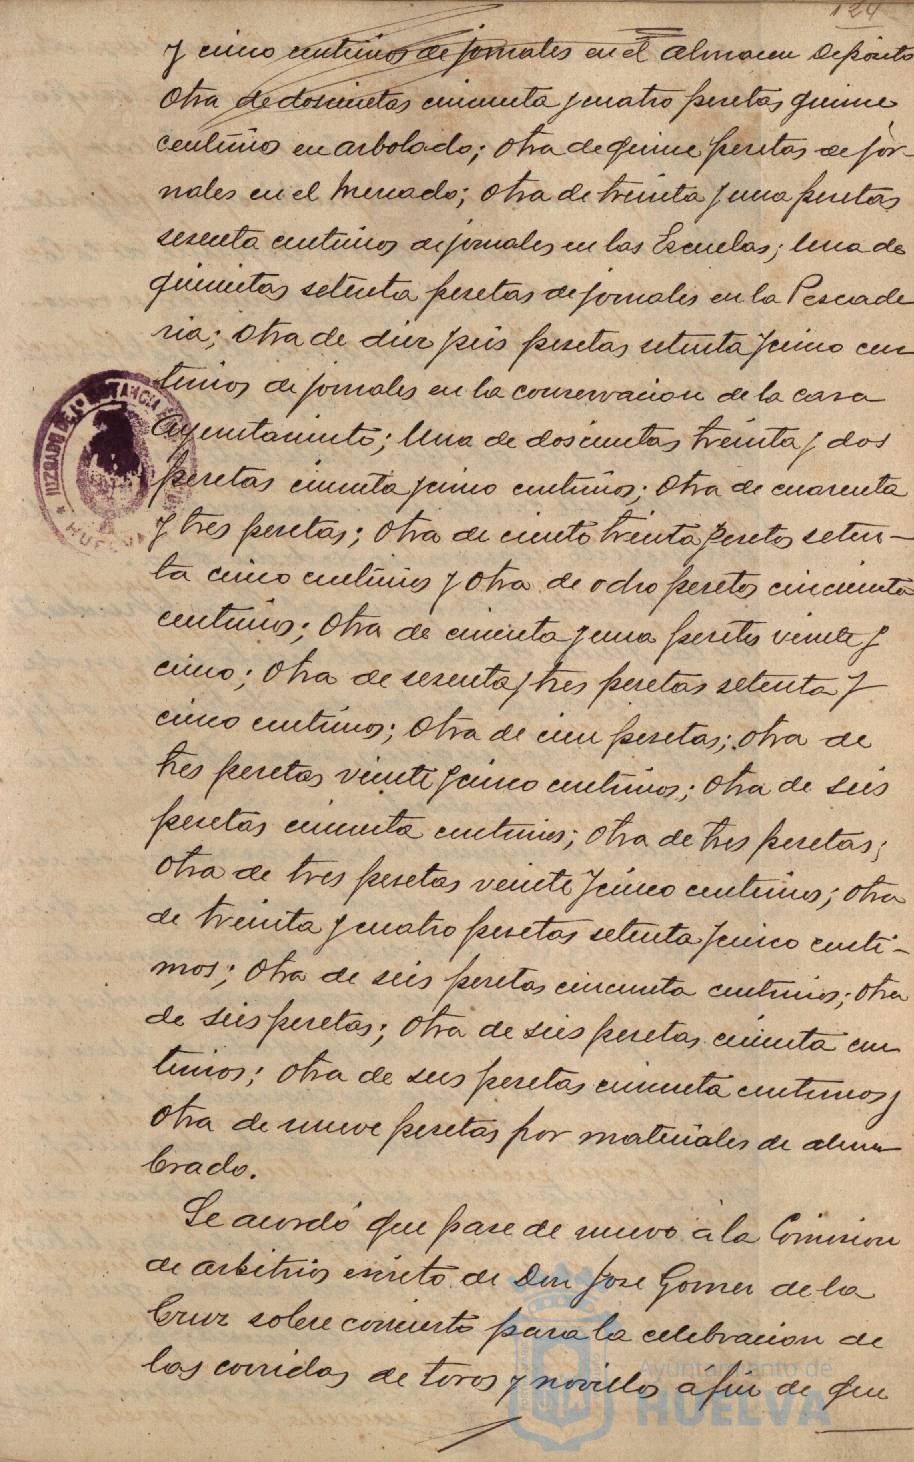 124
y cinco centimos de jornales en el almacen Deposito
Otra de doscientas cincuenta y cuatro pesetas quince
centimos en arbolado; Otra de quince pesetas de jor-
nales en el Mercado; Otra de treinta y una pesetas
sesenta centimos de jornales en las Escuelas; Una de
quinientas setenta pesetas de jornales en la Pescade
ria; Otra de diez y seis pesetas setenta y cinco cen
timos de jornales en la conservacion de la casa
Ayuntamiento; Una de doscientas treinta y dos
pesetas cincuenta y cinco centimos; Otra de cuarenta
y tres pesetas; Otra de ciento treinta pesetas seten-
ta cinco centimos y Otra de ocho pesetas cincuenta
centimos; Otra de cincuenta y una pesetas veinte y
cinco; Otra de sesenta y tres pesetas setenta y
cinco centimos; Otra de cien pesetas; Otra de
tres pesetas veinte y cinco centimos; Otra de seis
pesetas cincuenta centimos; Otra de tres pesetas;
Otra de tres pesetas veinte y cinco centimos; Otra
de treinta y cuatro pesetas setenta y cinco centi-
mos; Otra de seis pesetas cincuenta centimos; Otra
de seis pesetas; Otra de seis pesetas cincuenta cen
timos; Otra de seis pesetas cincuenta centimos y
Otra de nueve pesetas por materiales de alum
brado.
Se acordó que pase de nuevo á la Comision
de arbitrios escrito de Don Jose Gomez de la
Cruz sobre concierto para la celebracion de
las corridas de toros y novillos a fin de que
JUZGADO DE 1ª INSTANCIA
HUELVA
Ayuntamiento de
HUELVA